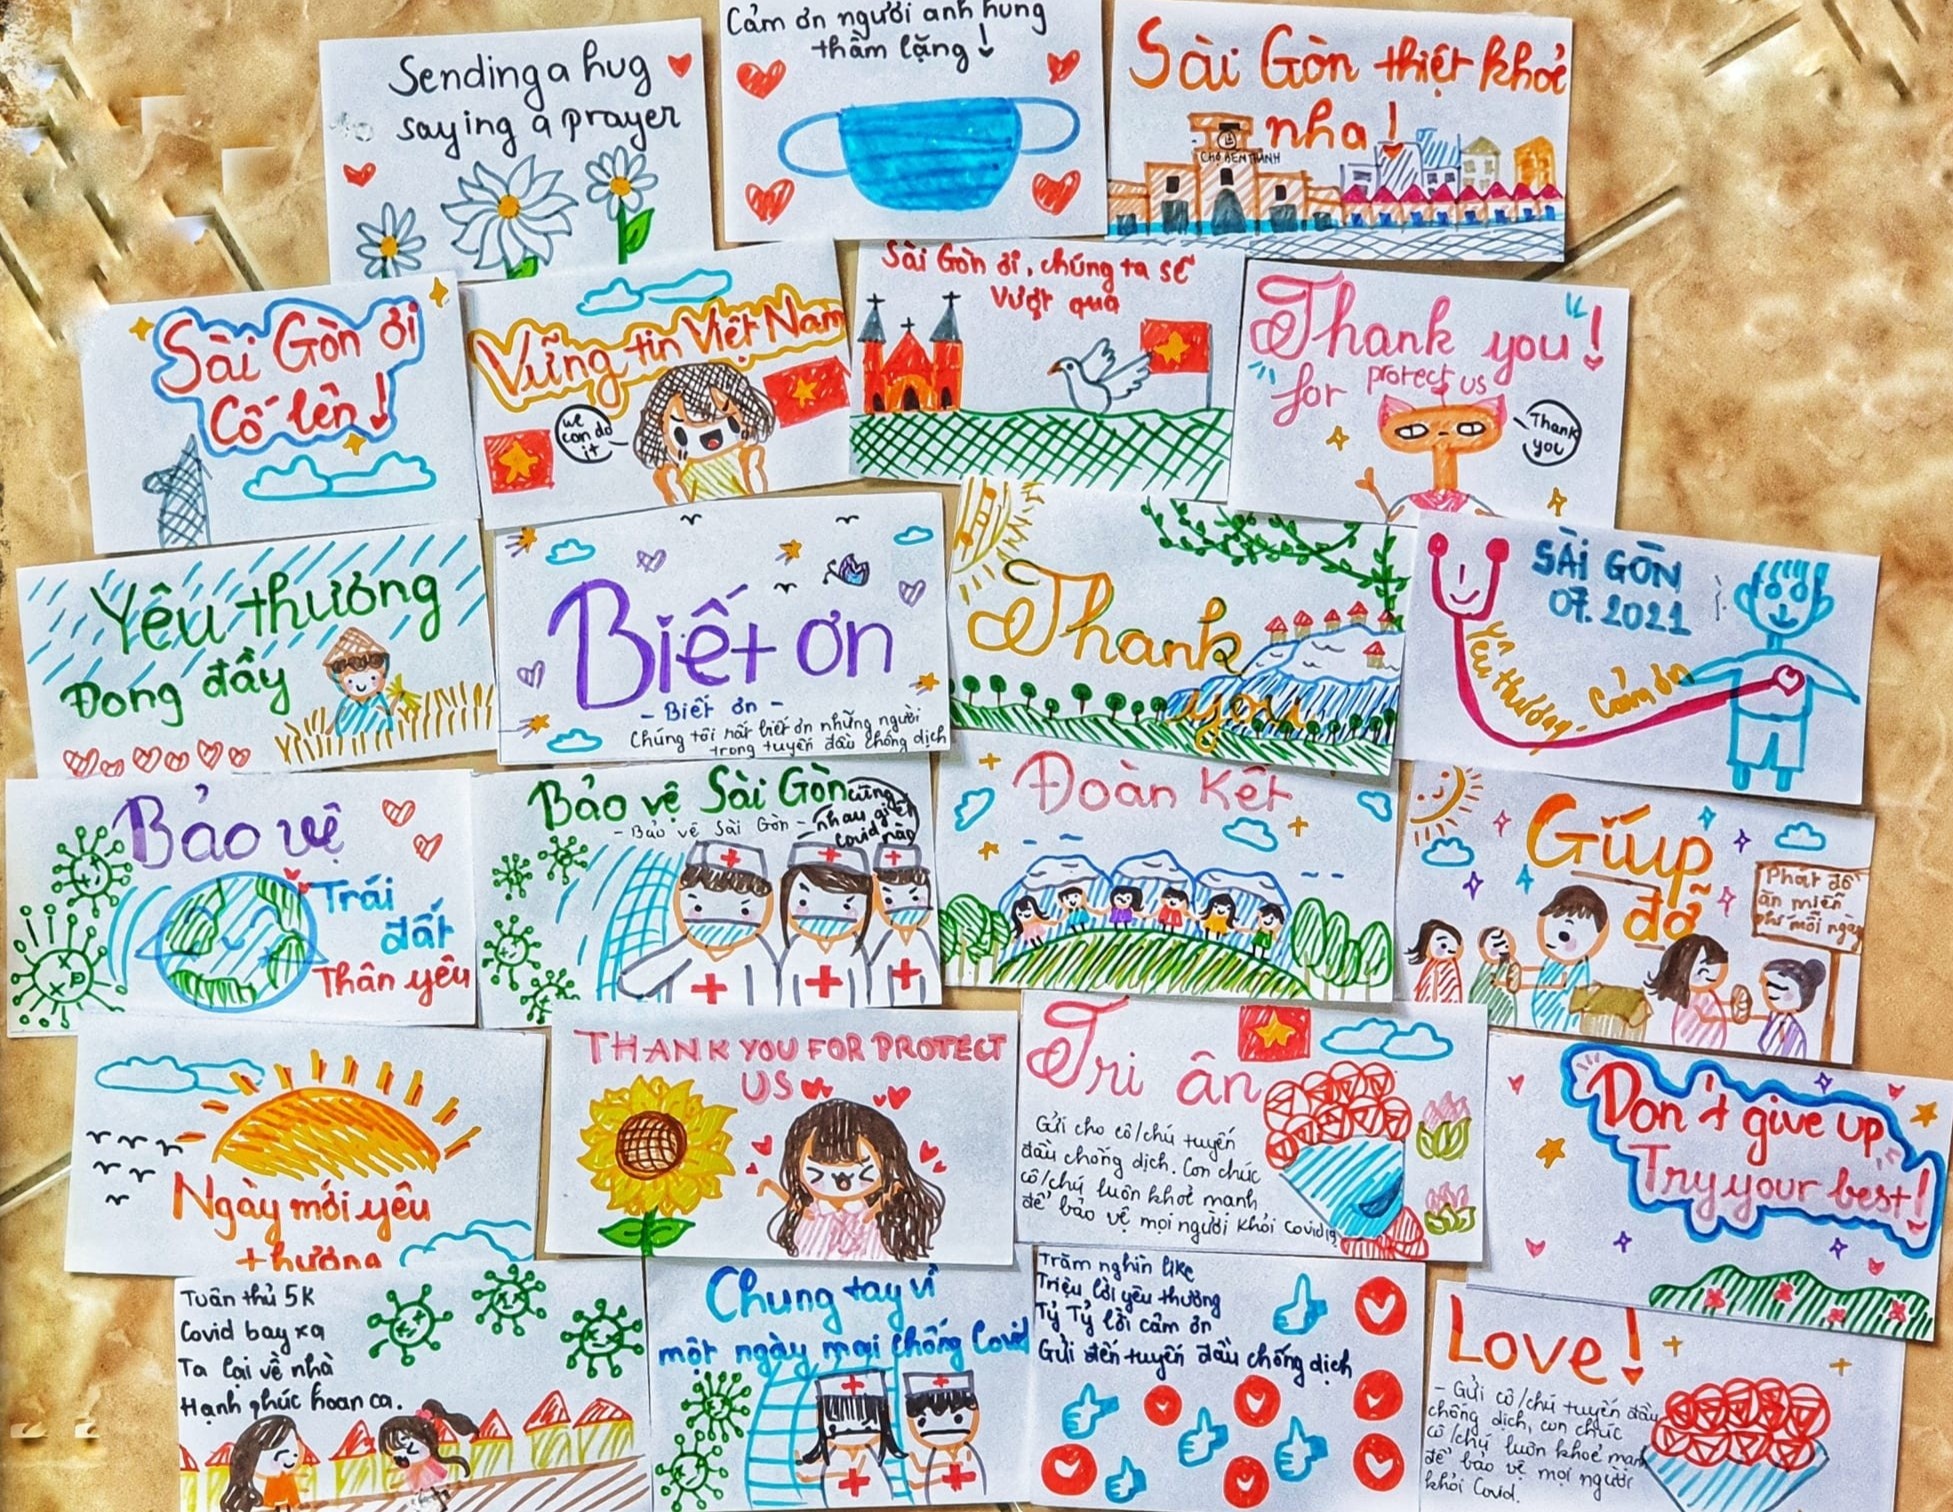 Sending a hug
saying a prayer
Cảm ơn người anh hung
thầm lặng!
Sài Gòn thiệt khoẻ
nha!
CHỢ BẾN THÀNH
Sài Gòn ơi
Cố lên!
Vững tin Việt Nam
we
can do
it
Sài Gòn ơi, chúng ta sẽ
vượt qua
Thank you!
for protect us
Thank
you
Yêu thương
Đong đầy
Biết ơn
- Biết ơn -
Chúng tôi rất biết ơn những người
trong tuyến đầu chống dịch
Thank
you
SÀI GÒN
07.2021
Yêu thương - Cảm ơn
Bảo vệ
Trái
đất
Thân yêu
Bảo vệ Sài Gòn
- Bảo vệ Sài Gòn -
cùng
nhau giết
covid nào
Đoàn Kết
Giúp
đỡ
Phát đồ
ăn miễn
phí mỗi ngày
Ngày mới yêu
thương
THANK YOU FOR PROTECT
US
Tri ân
Gửi cho cô/chú tuyến
đầu chống dịch. Con chúc
cô/chú luôn khoẻ mạnh
để bảo vệ mọi người khỏi Covid19
Don't give up
Try your best!
Tuân thủ 5K
Covid bay xa
Ta lại về nhà
Hạnh phúc hoan ca.
Chung tay vì
một ngày mai chống Covid
Trăm nghìn like
Triệu lời yêu thương
Tỷ Tỷ lời cảm ơn
Gửi đến tuyến đầu chống dịch
Love!
- Gửi cô/chú tuyến đầu
chống dịch, con chúc
cô/chú luôn khoẻ mạnh
để bảo vệ mọi người
khỏi Covid.